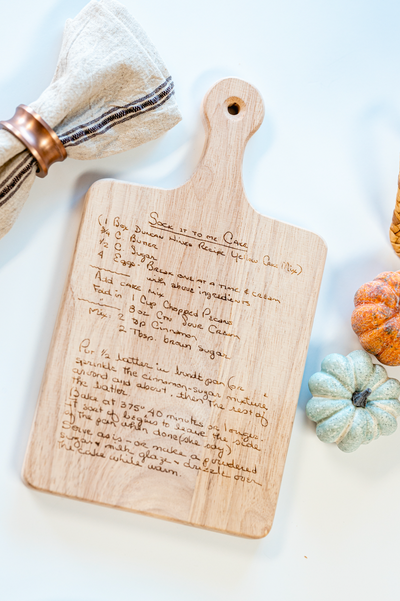 Sock it to me Cake
(1 Box Duncan Hines Recipe Yellow Cake Mix)
3/4 C. Butter
1/2 C. Sugar
4 Eggs - Break one at a time & cream
Add cake mix with above ingredients
Fold in 1 Cup Chopped Pecans
8 oz Ctn Sour Cream
Mix: 2 tsp Cinnamon
2 Tbsp. brown sugar
Put 1/2 batter in bundt pan (or
sprinkle the cinnamon-sugar mixture
around and about, then the rest of
the batter
Bake at 375° 40 minutes or longer-
it sort of begins to leave the side
of the pan when done
Serve as is - or make a powdered
sugar & milk glaze & drizzle over
the cake while warm